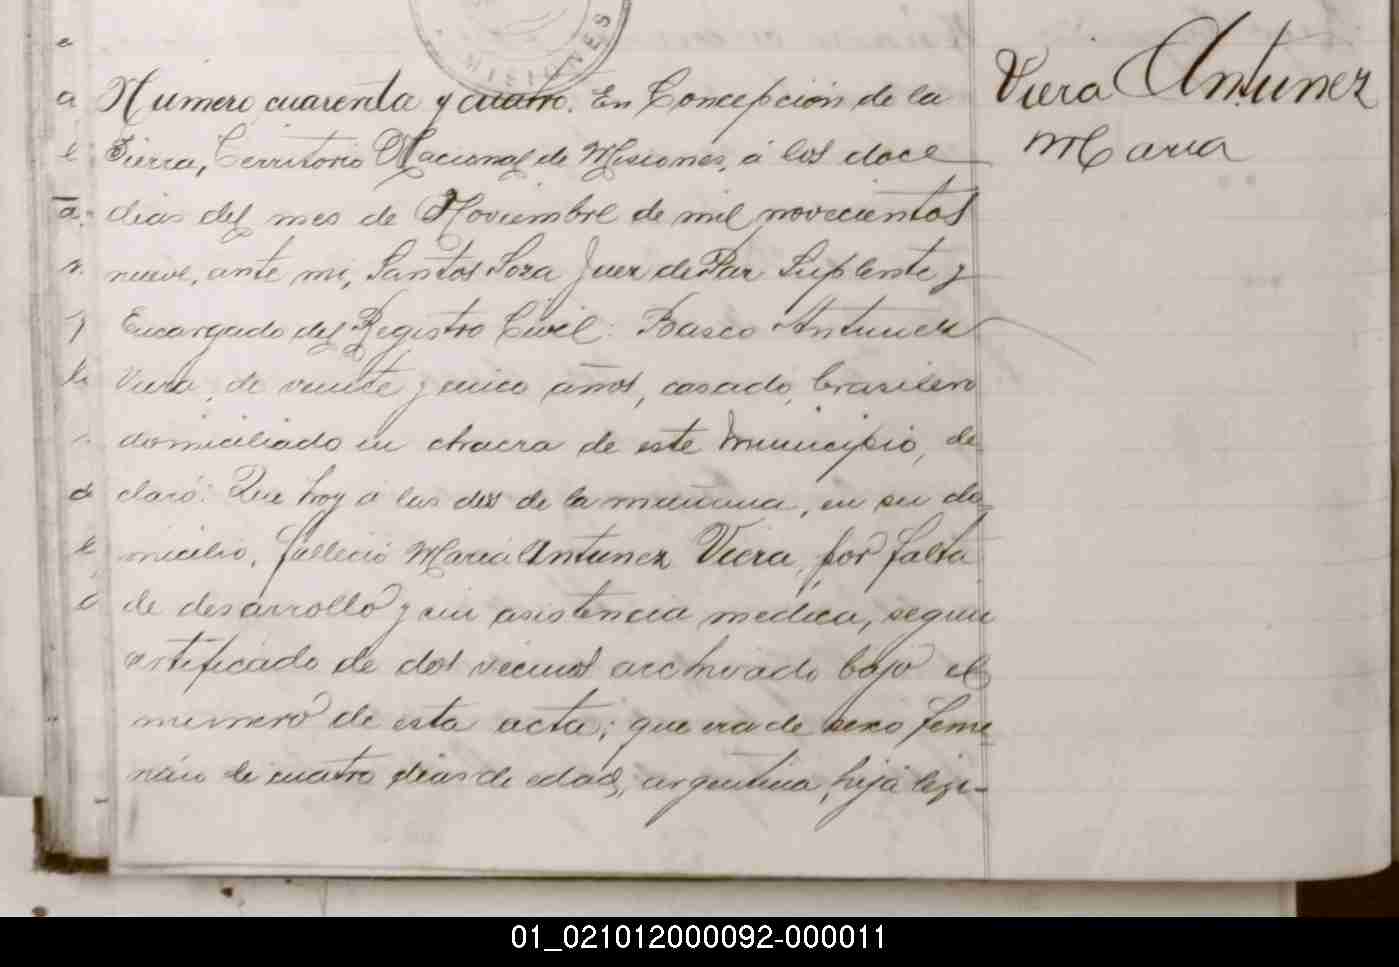 MISIONES
Viera Antunez
Maria
Número cuarenta y cuatro. En Concepción de la
Sierra, Territorio Nacional de Misiones, á los doce
dias del mes de Noviembre de mil novecientos
nueve, ante mi, Santos Sosa Juez de Paz Suplente y
Encargado del Registro Civil: Basco Antunez
Viera, de veinte y cinco años, casado, brasilero
domiciliado en chacra de este Municipio, de
claró: Que hoy á las diez de la mañana, en su do-
micilio, falleció Maria Antunez Viera, por falta
de desarrollo y sin asistencia medica, segun
certificado de dos vecinos archivado bajo el
numero de esta acta; que era de sexo feme
nino de cuatro dias de edad, argentina, hija legi-
01_021012000092-000011